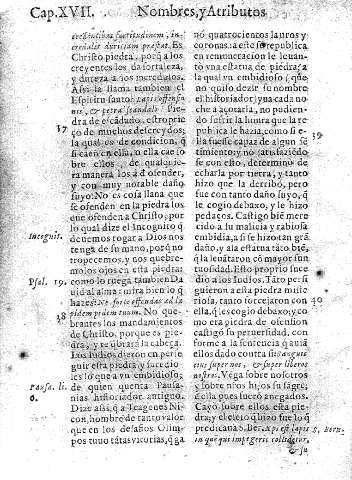 Cap. XVII.
Nombres, y Atributos
credentibus fortitudinem, in-
credulis duritiam præstat. Es
Christo piedra, porq̃ a los
creyentes los da fortaleza,
y dureza a los incredulos.
Assi la llama tambien el
Espiritu santo: Lapis offensio-
nis, & petra scandali. Pie-
37
dra de escãdalo, estro pie-
ço de muchos descreydos;
la qual es de condicion, q̃
si caen en ella, o ella cae so
bre ellos, de qualquie-
ra manera los a d ofender,
y con muy notable daño
suyo. No es cosa llana que
se ofenden en la piedra los
que ofenden a Christo, por
Incognit.
lo qual dize el Incognito q̃
deuemos rogar a Dios nos
tenga de su mano, porq̃ no
tropecemos, y nos quebre-
mos los ojos en esta piedra:
Psal. 19.
como lo ruega tambien Da
uid al alma contra bien lo q̃
hazes: Ne forte offendas ad la
pidem pedem tuum. No que-
38
brantes los mandamientos
de Christo, porque es pie-
dra, y te q̃brara la cabeça.
Los Iudios dieron en perse
guir esta piedra y sucedio
les lo que a vn embidioso;
Pausa. li.
de quien quenta Pausa-
6.
nias historiador antiguo.
Dize assi, q̃ a Teagenes Ni
con, hombre de tanto valor
que en los desafios Olim-
pos tuuo tãtas vitorias, q̃ ga
nó quatrocientos lauros y
coronas: a este su republica
en remuneracion le leuan-
tò vna estatua de piedra; a
la qual vn embidioso, que
no quiso dezir su nombre
el historiador, yua cada no
che a açotarla, no pudien-
do sufrir la honra que la re
publica le hazia, como si e-
39
lla fuesse capaz de algun se
timiento; y no satisfaziẽdo
se con esto, determinò de
echarla por tierra, y tanto
hizo que la derribó, pero
fue con tanto daño suyo, q̃
le cogio debaxo, y le hizo
pedaços. Castigo biẽ mere
cido a su malicia y rabiosa
embidia, a si se hizo tan grã
daño, y a la estatua tãto biẽ,
q̃ la leuãtaron cõ mayor sun
tuosidad. Esto proprio suce
dio a los Iudios. Tãto persi
guieron a esta piedra miste
40
riosa, tanto forcejaron con
ella, q̃ les cogio debaxo; y co
mo era piedra de ofension
castigò su peruersidad, con
forme a la sentencia q̃ auiã
ellos dado contra si: sangui
eius super nos, & super filios
nostros. Vega sobre nosotros
y sobre nr̃os hijos su sãgre;
della pues fuerõ anegados.
Cayo sobre ellos esta pie-
dra; y el efeto q̃ hizo fue lo q̃
predicaua S. Ber. Xp̃s est lapis
Bern.
in quẽ qui impegeris collidetur,
& su